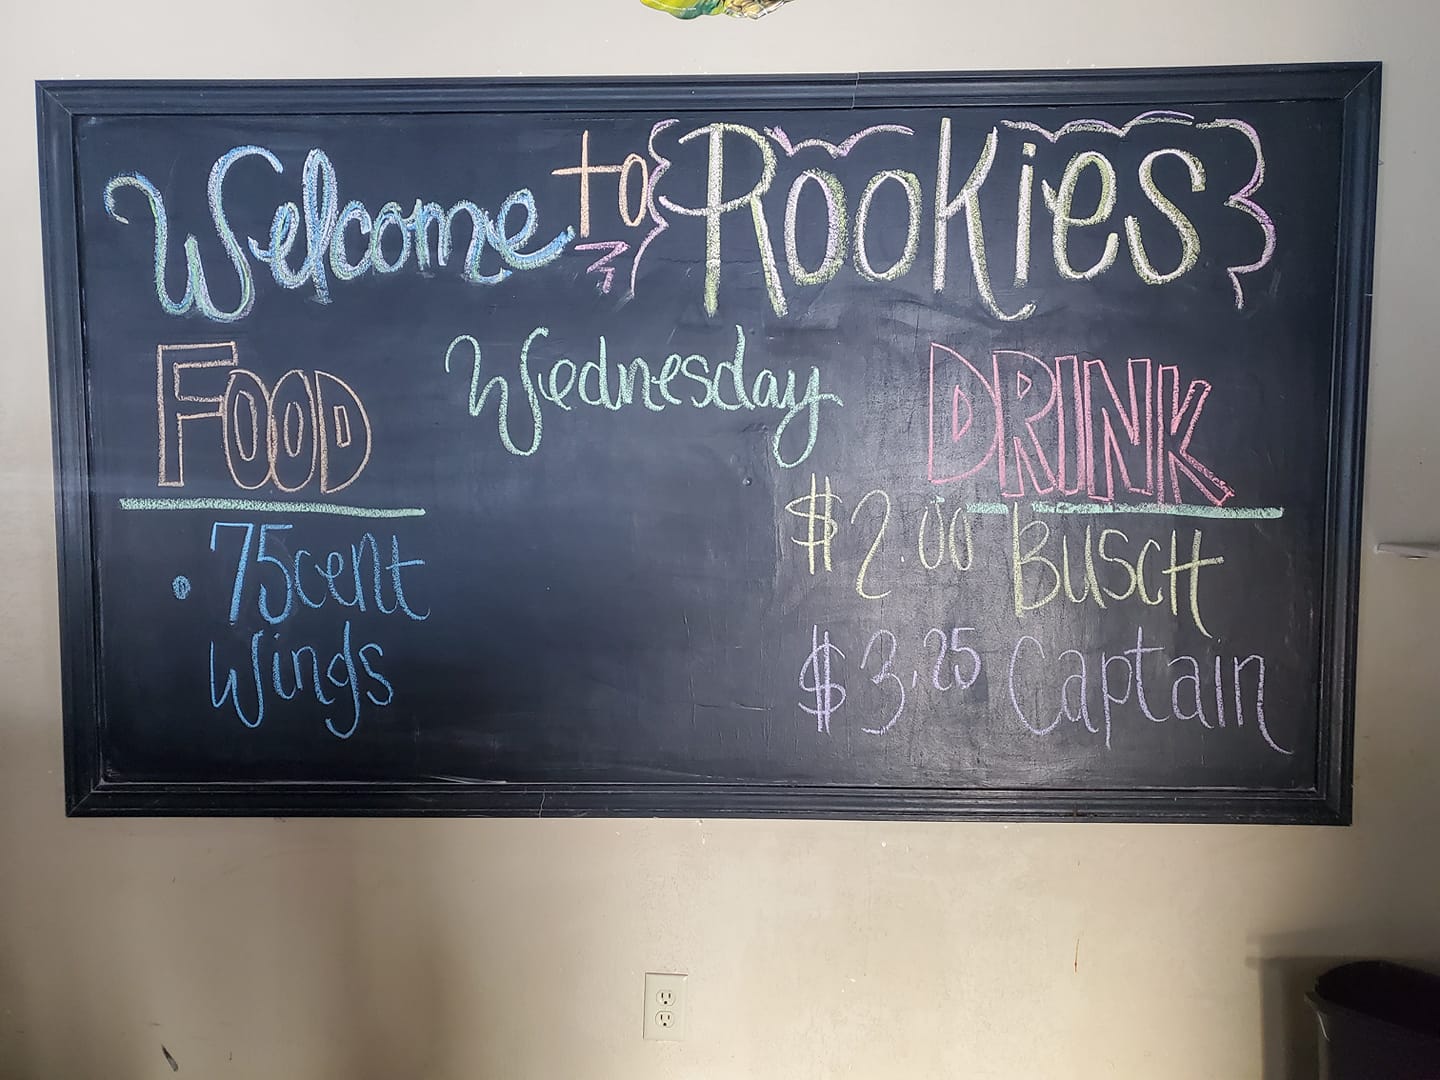 Welcome to Rookies
Wednesday
FOOD
• 75cent
Wings
DRINK
$2.00 Busch
$3.25 Captain